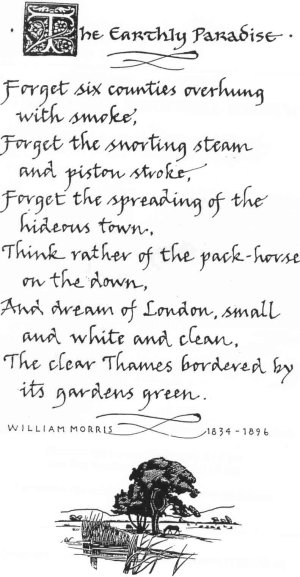 The Earthly Paradise
Forget six counties overhung
with smoke,
Forget the snorting steam
and piston stroke,
Forget the spreading of the
hideous town,
Think rather of the pack-horse
on the down,
And dream of London, small
and white and clean,
The clear Thames bordered by
its gardens green.
WILLIAM MORRIS 1834-1896